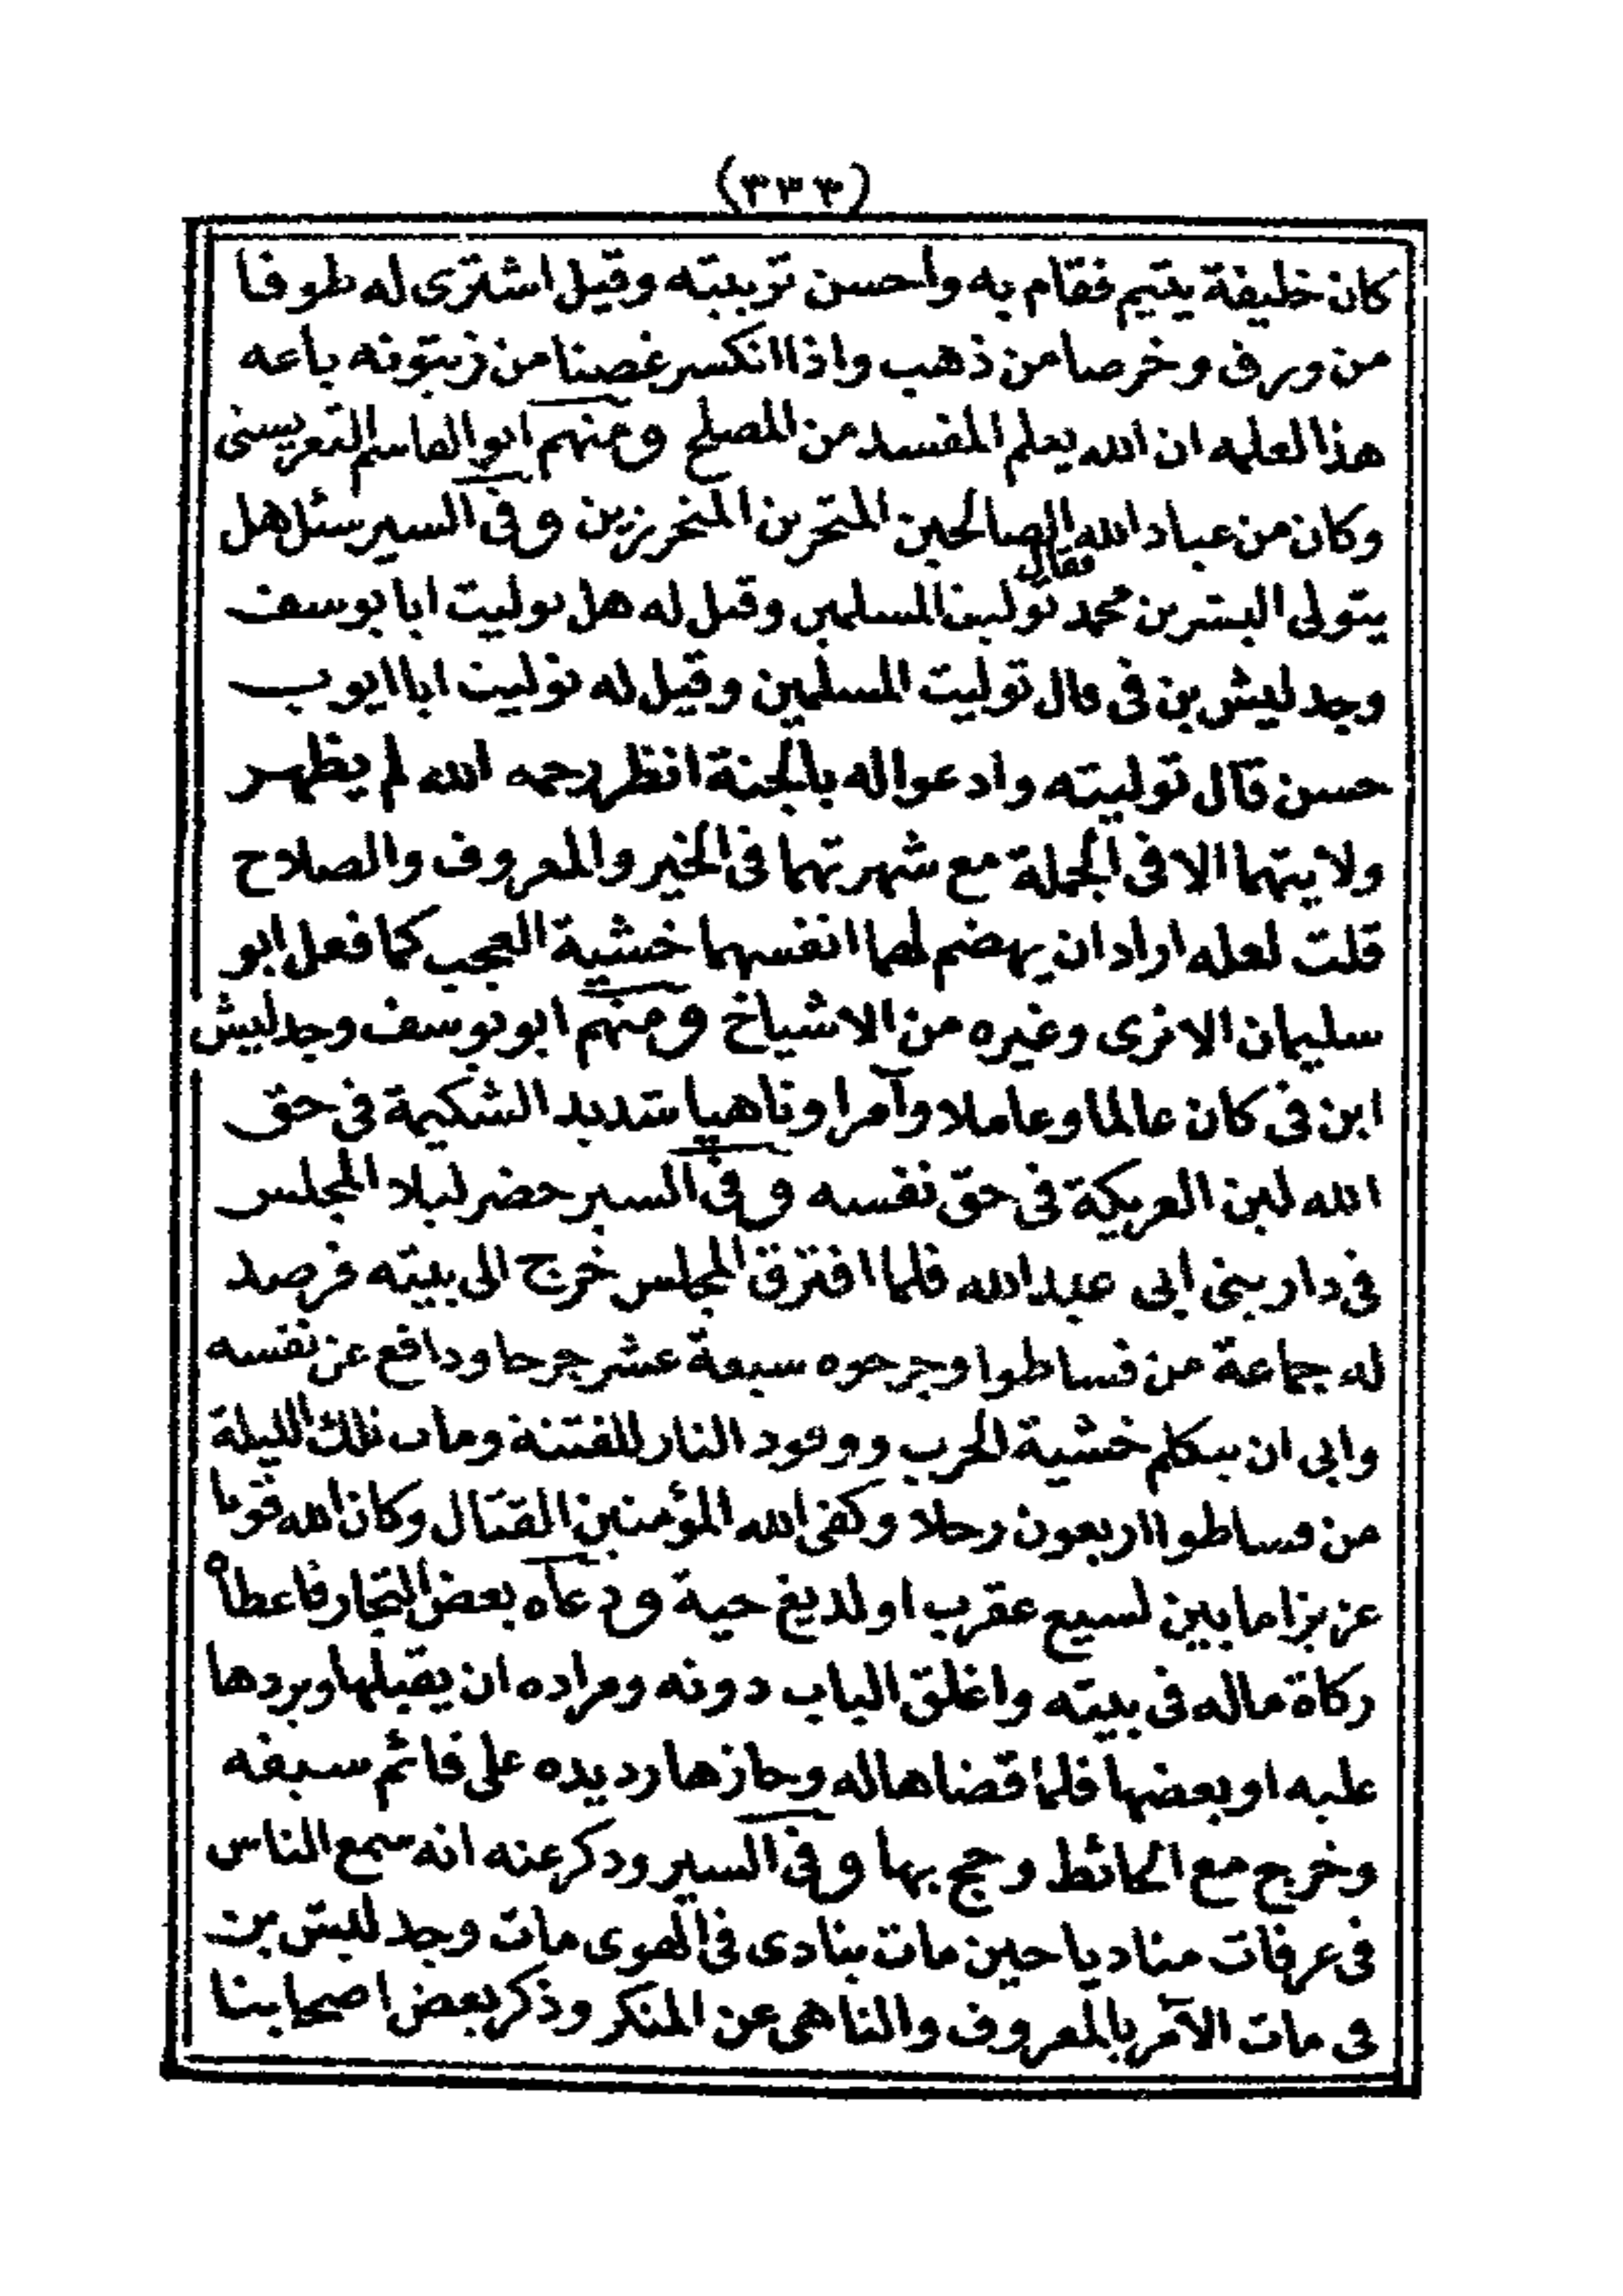 (٣٣٣)
كان خليفة يتيم فقام به واحسن تربيته وقيل اشترى له طوقا
من ورق وخرصا من ذهب واذا انكسر غصنا من زيتونه باعه
هذا لعلمه ان الله يعلم المفسد من المصلح ومنهم ابو القاسم
وكان من عباد الله الصالحين المتحرين المتحرزين وفى السير سئل هل
يتولى البشر بن محمد فقال توليت المسلمين وقيل له هل توليت ابا يوسف
وجدليش بن فى قال توليت المسلمين وقيل له توليت ابا ايوب
حسن قال توليته وادعوا له بالجنة انظر رحمه الله لم يظهر
ولايتهما الا فى الجملة مع شهرتهما فى الخير والمعروف والصلاح
قلت لعله اراد ان يهضم لهما انفسهما خشية العجب كما فعل ابو
سليمان الابزى وغيره من الاشياخ ومنهم ابو يوسف وجدليش
ابن فى كان عالما وعاملا وآمرا وناهيا شديد الشكيمة فى حق
الله لين العريكة فى حق نفسه وفى السير حضر ليلا المجلس
فى دار بنى ابى عبد الله فلما افترق المجلس خرج الى بيته فرصد
له جماعة من فساطوا وجرحوه سبعة عشر جرحا ودافع عن نفسه
وابى ان يتكلم خشية الحرب ووقود النار للفتنة ومات تلك الليلة
من فساطوا اربعون رجلا وكفى الله المؤمنين القتال وكان الله قويا
عزيزا ما بين لسيع عقرب او لديغ حية ودعاه بعض التجار فاعطاه
زكاة ماله فى بيته واغلق الباب دونه ومراده ان يقبلها ويردها
عليه او بعضها فلما قضاها له وحازها رد يده على قائم سيفه
وخرج مع الحائط وحج بها وفى السير وذكر عنه انه سمع الناس
فى عرفات مناديا حين مات ينادى فى الهوى مات وجدليش بن
فى مات الآمر بالمعروف والناهى عن المنكر وذكر بعض اصحابنا